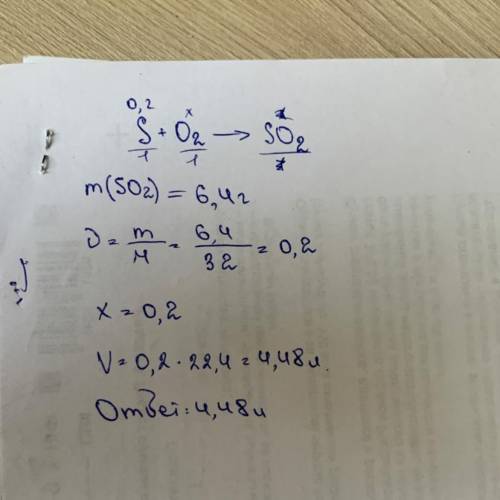 0,2 x
S + O2 → SO2
1 1
m(SO2) = 6,4г
ν = m/M = 6,4/32 = 0,2
x = 0,2
V = 0,2 · 22,4 = 4,48 л.
Ответ: 4,48 л